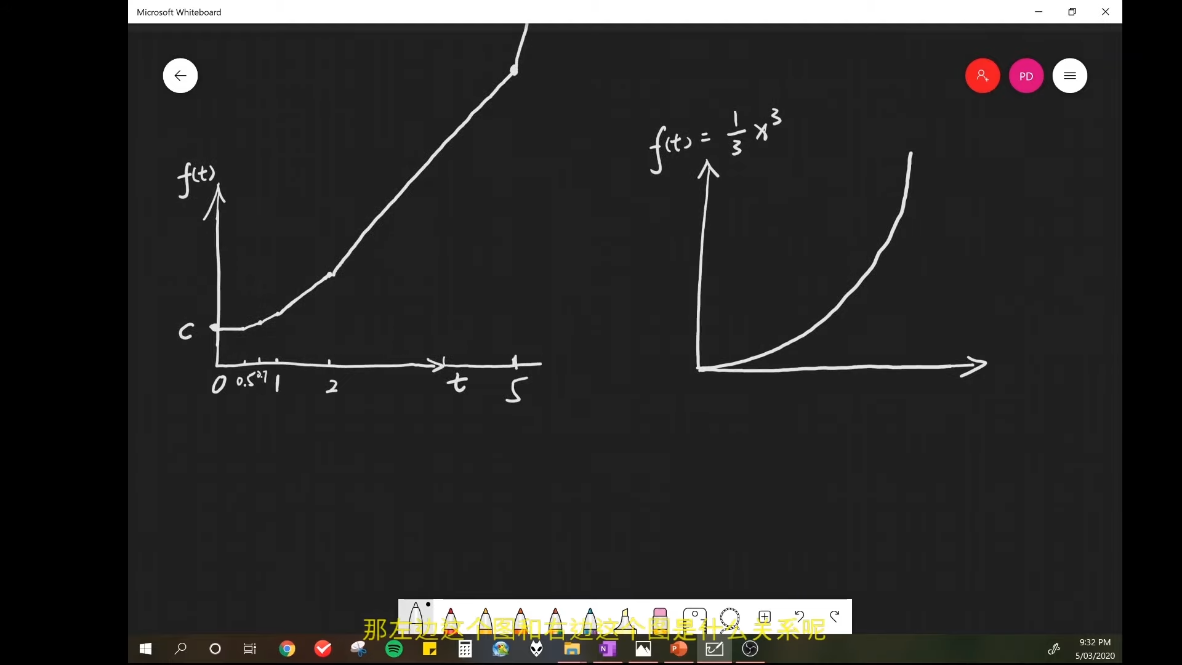 Microsoft Whiteboard
PD
f(t) = 1/3 x³
f(t)
C
0 0.5 0.7 1 2 t 5
那左边这个图和右边这个图是什么关系呢
9:32 PM
5/03/2020